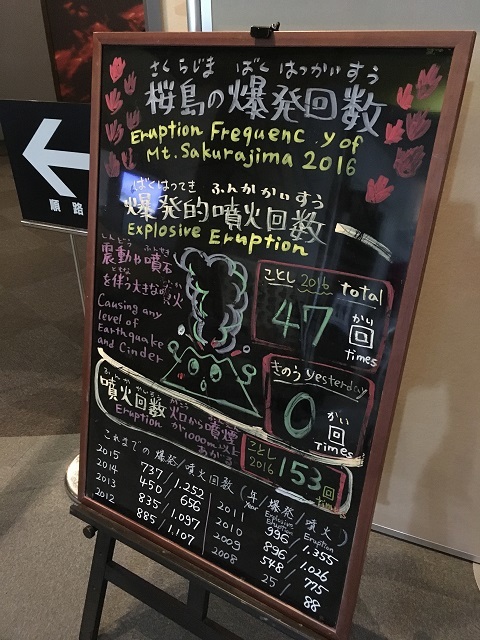 さくらじま ばくはつかいすう
桜島の爆発回数
Eruption Frequency of
Mt. Sakurajima 2016
ばくはつてき ふんかかいすう
爆発的噴火回数
Explosive Eruption
しんどう ふんせき
震動や噴石
ともな
を伴う大きな噴火
Causing any
level of
Earthquake
and Cinder
ことし 2016 total
47
かい
回
times
きのう yesterday
0
かい
回
Times
噴火回数
火口から噴煙
が1000m以上
あがる
Eruption
ことし
2016
153回
これまでの爆発/噴火回数 (年/爆発/噴火)
Year Explosive Eruption Eruption
2015 737/1.252
2014 450/656
2013 835/1.097
2012 885/1.107
2011 996/1.355
2010 896/1.026
2009 548/775
2008 25/88
順路